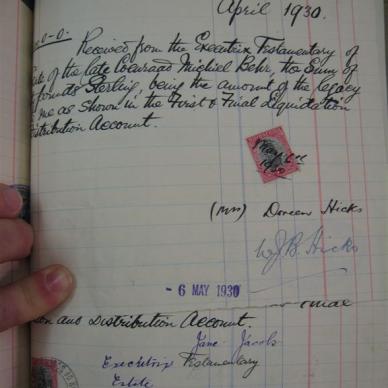 April 1930.
Received from the Executrix Testamentary of
of the late Coenraad Michiel Behr, the Sum of
Pounds Sterling, being the amount of the legacy
me as shown in the First & Final Liquidation
Distribution Account.
(Mrs) Doreen Hicks
W J B. Hicks
- 6 MAY 1930
and Distribution Account.
Jane Jacobs
Executrix Testamentary
Estate